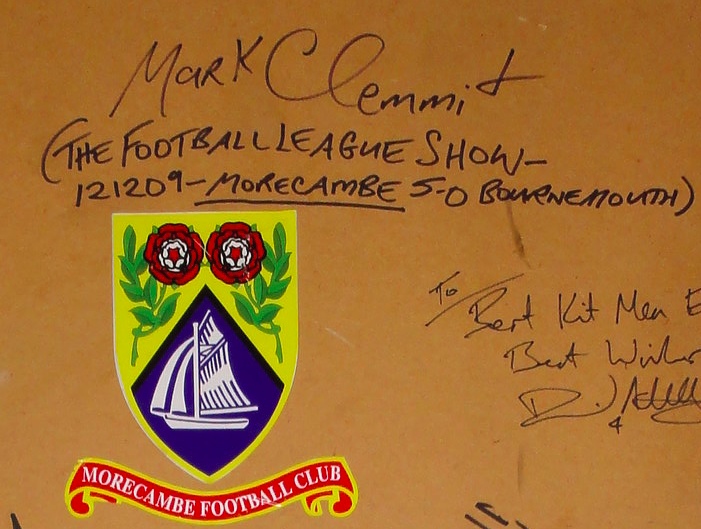 Mark Clemmit
(THE FOOTBALL LEAGUE SHOW-
121209-MORECAMBE 5-0 BOURNEMOUTH)
To
Best Kit Men E
Best Wishes
4
MORECAMBE FOOTBALL CLUB